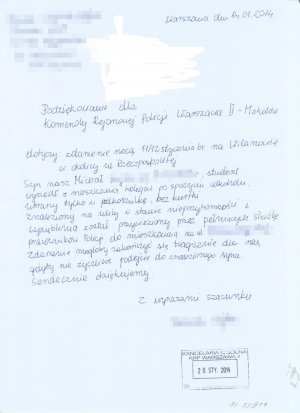 Warszawa dn 14.01.2014
Podziękowanie dla
Komendy Rejonowej Policji Warszawa II - Mokotów
dotyczy: zdarzenie nocą 11/12 stycznia br na Wilanowie
w okolicy al Rzeczpospolitej
Syn nasz Michał student
wyszedł z mieszkania kolegi po spożyciu alkoholu,
ubrany tylko w podkoszulkę, bez kurtki
Znaleziony na ulicy w stanie nieprzytomności i
wyziębienia został przywieziony przez pełniących służbę
pracowników Policji do mieszkania na w
Zdarzenie mogłoby zakończyć się tragicznie dla nas,
gdyby nie życzliwe podejście do znalezionego syna.
Serdecznie dziękujemy
Z wyrazami szacunku
KANCELARIA OGÓLNA
KRP WARSZAWA II
20 STY. 2014